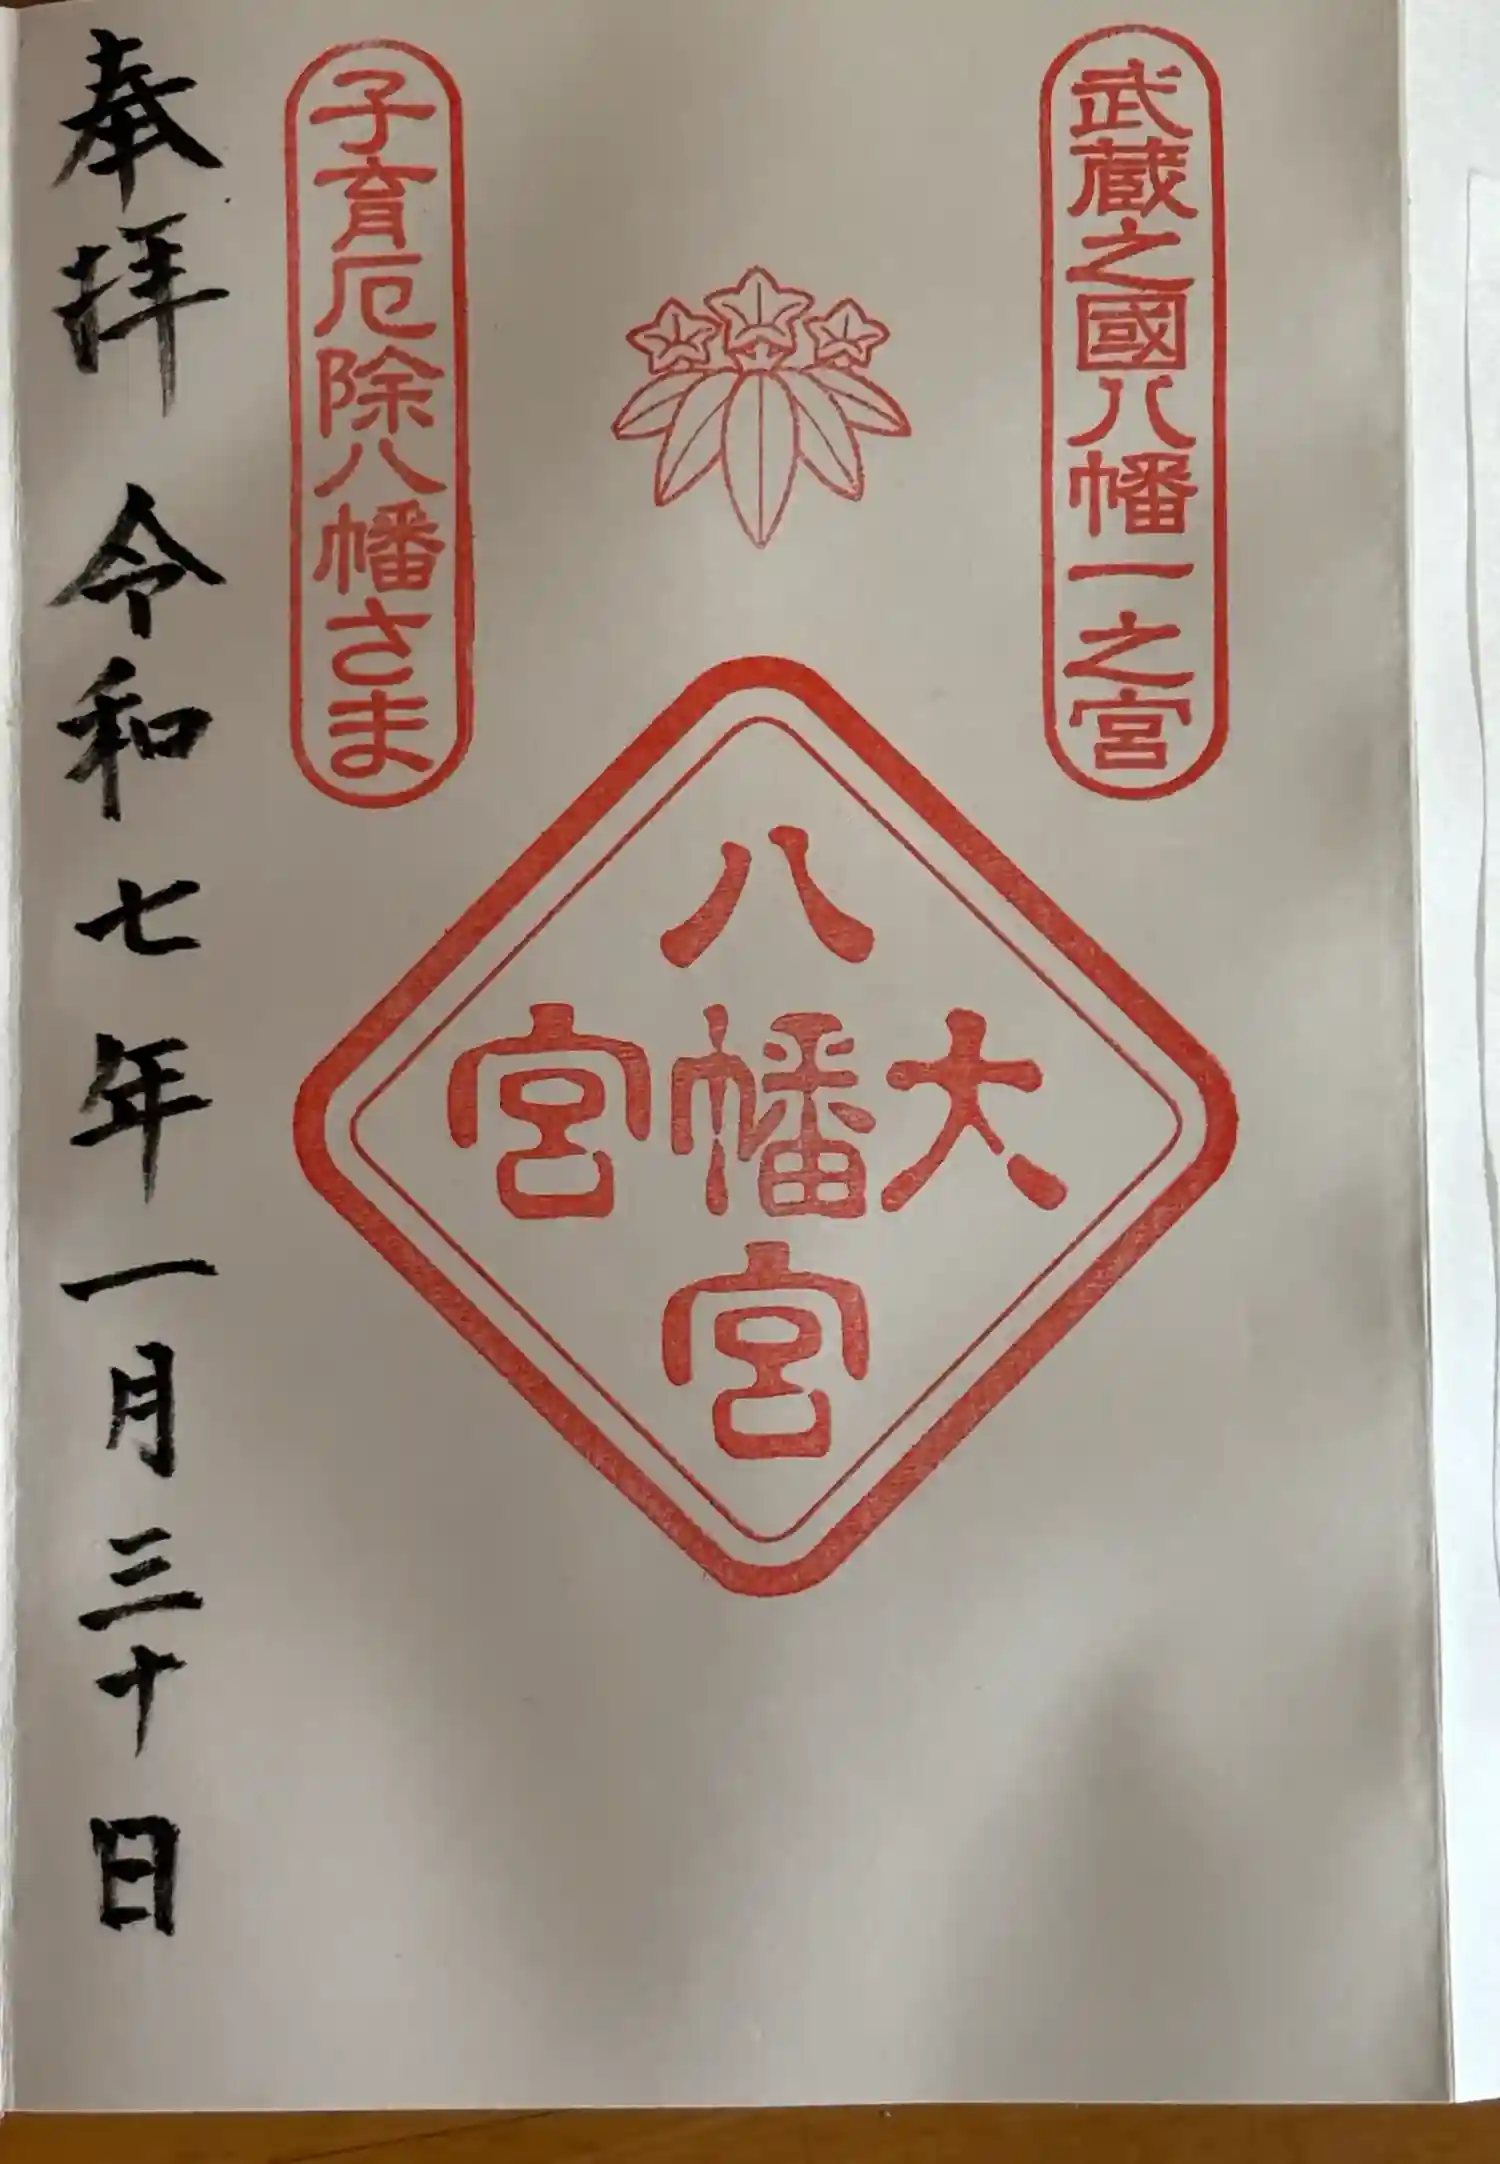 武蔵之國八幡一之宮
八幡宮
大
宮
子育厄除八幡さま
奉拝 令和七年一月三十日